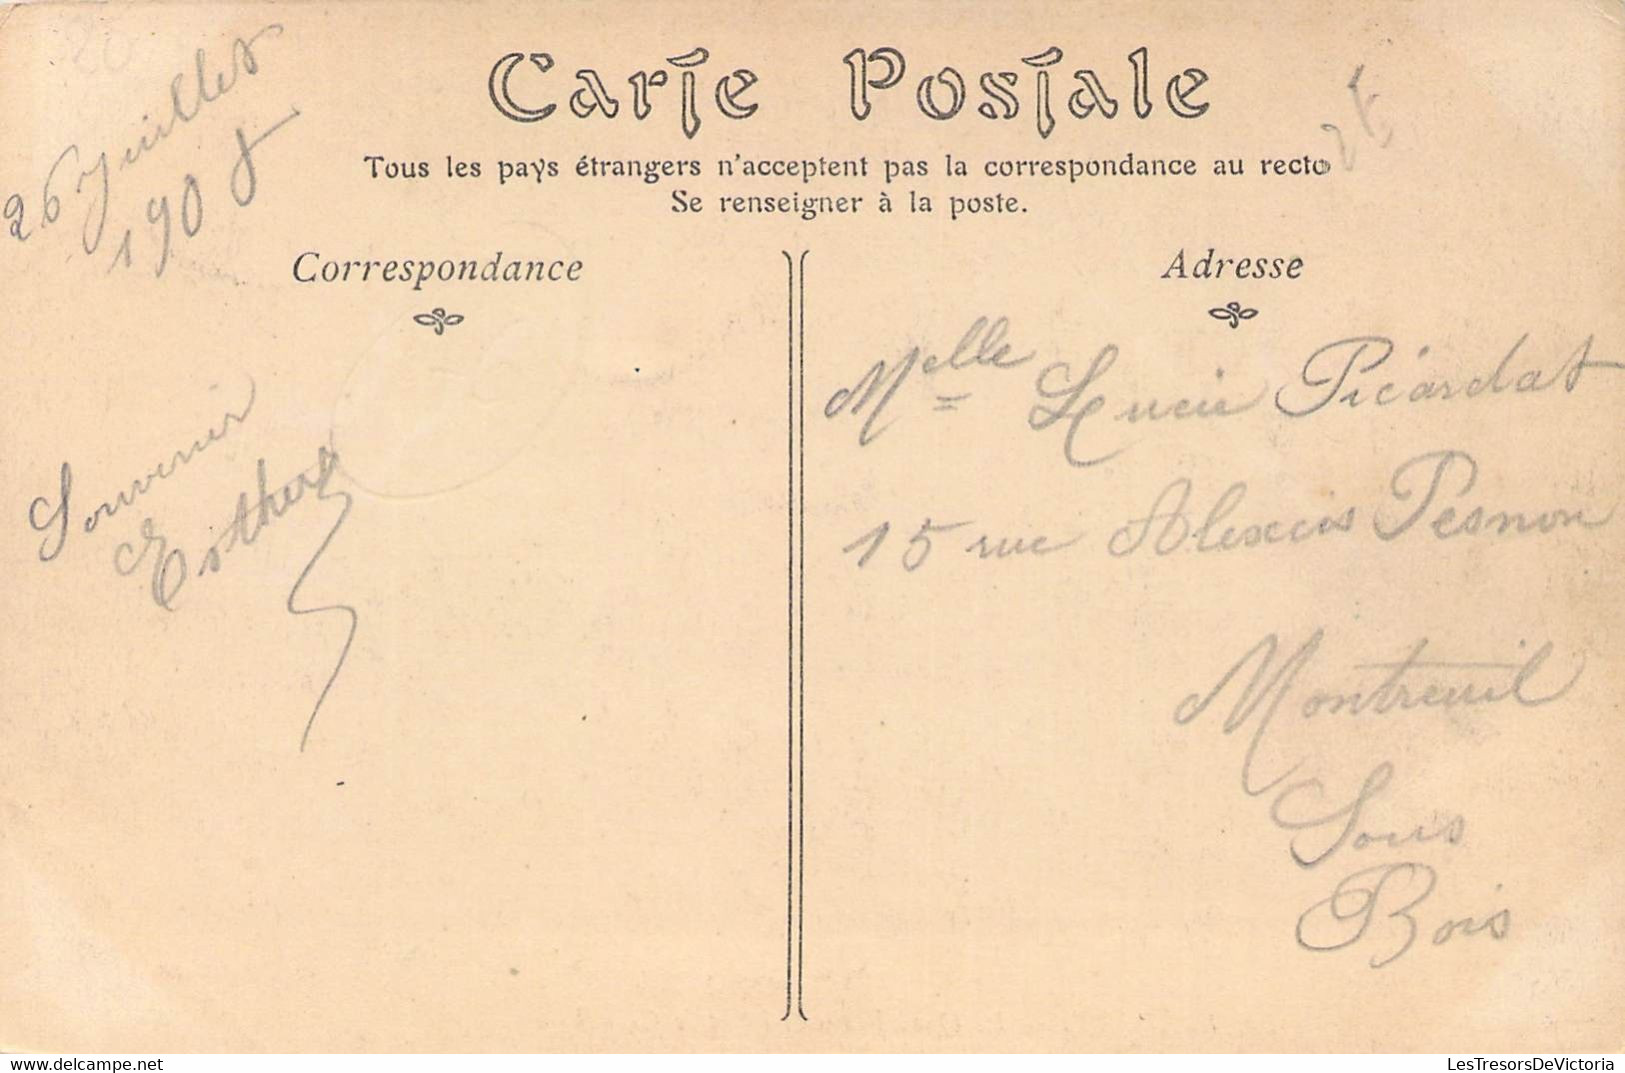 26 Juillet
190
Carte Postale
Tous les pays étrangers n'acceptent pas la correspondance au recto
Se renseigner à la poste.
Correspondance
Souvenir
Esther
Adresse
Melle Lucie Picardat
15 rue Alexis Pesnon
Montreuil
Sous
Bois
www.delcampe.net
LesTresorsDeVictoria